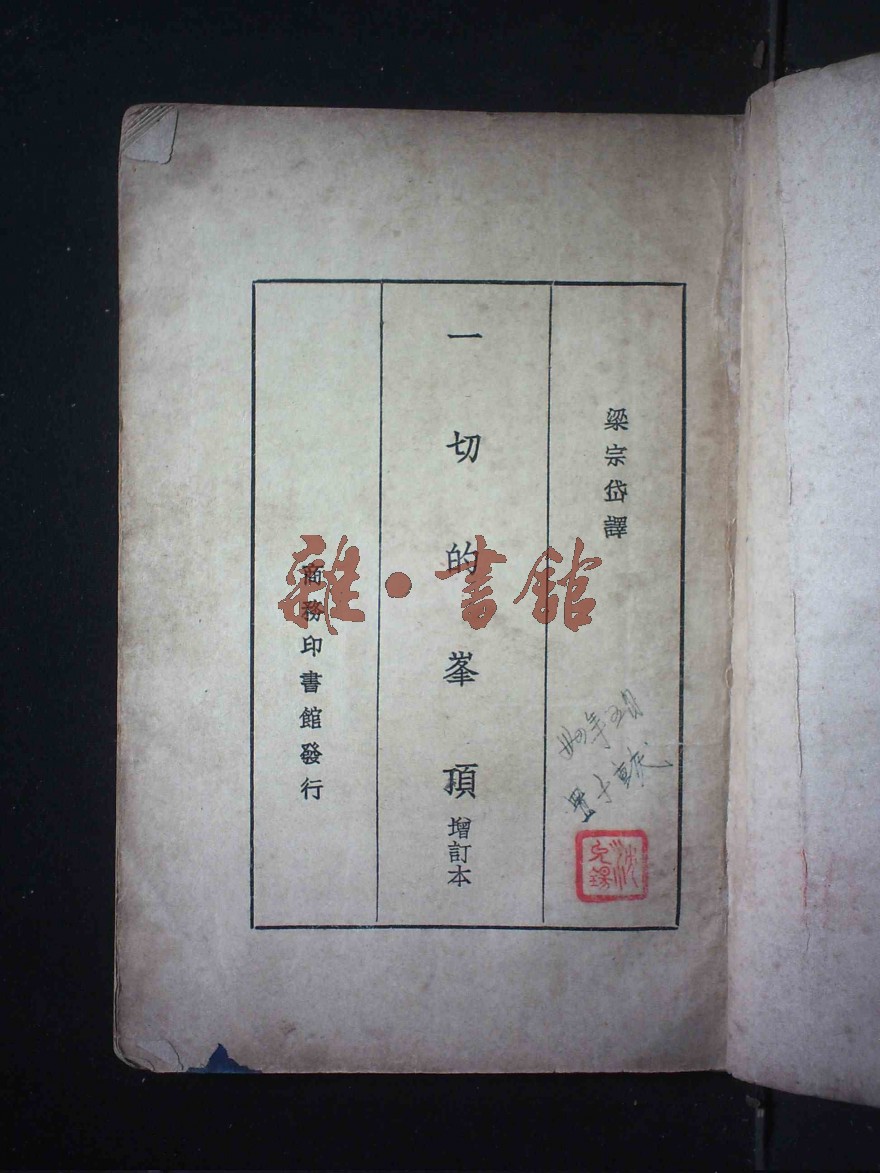 梁宗岱譯
一切的峯頂增訂本
商務印書館發行
雜·書館